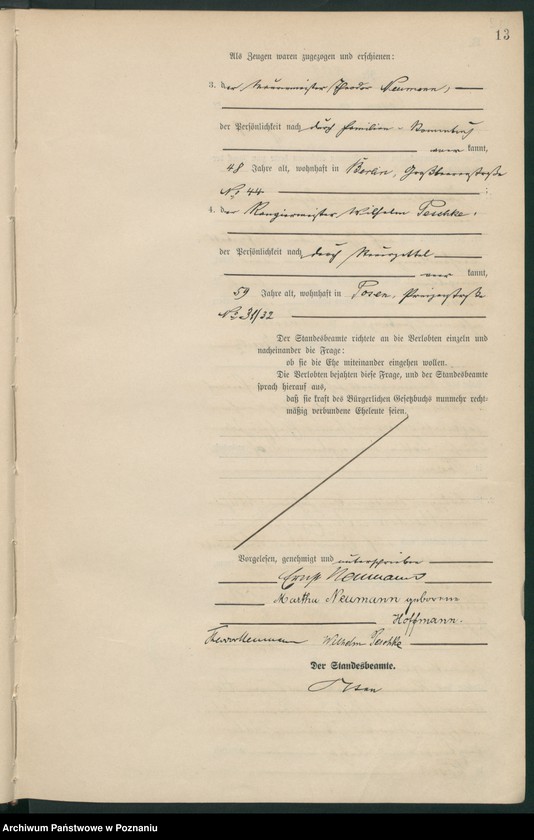 13
Als Zeugen waren zugezogen und erschienen:
3. der Maurermeister Theodor Neumann,
der Persönlichkeit nach durch Familien-Stammbuch
aner kannt,
48 Jahre alt, wohnhaft in Berlin, Großbeerenstraße
No 44 ;
4. der Rangiermeister Wilhelm Peschke,
der Persönlichkeit nach durch
aner kannt,
59 Jahre alt, wohnhaft in Posen, Prinzenstraße
No 31/32
Der Standesbeamte richtete an die Verlobten einzeln und
nacheinander die Frage:
ob sie die Ehe miteinander eingehen wollen.
Die Verlobten bejahten diese Frage, und der Standesbeamte
sprach hierauf aus,
daß sie kraft des Bürgerlichen Gesetzbuchs nunmehr recht-
mäßig verbundene Eheleute seien.
Vorgelesen, genehmigt und unterschrieben
Ernst Neumann
Martha Neumann geborene
Hoffmann.
Theodor Neumann Wilhelm Peschke
Der Standesbeamte.
Archiwum Państwowe w Poznaniu